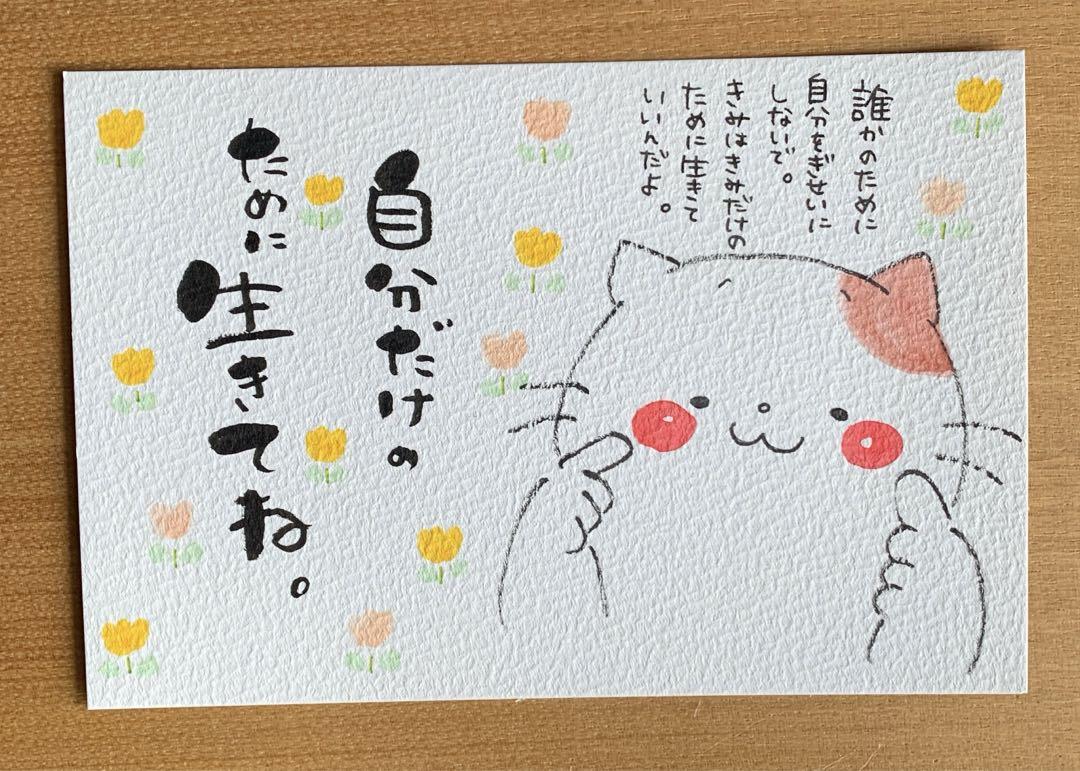 誰かのために
自分をぎせいに
しないで。
きみはきみだけの
ために生きて
いいんだよ。
自分だけの
ために
生きてね。